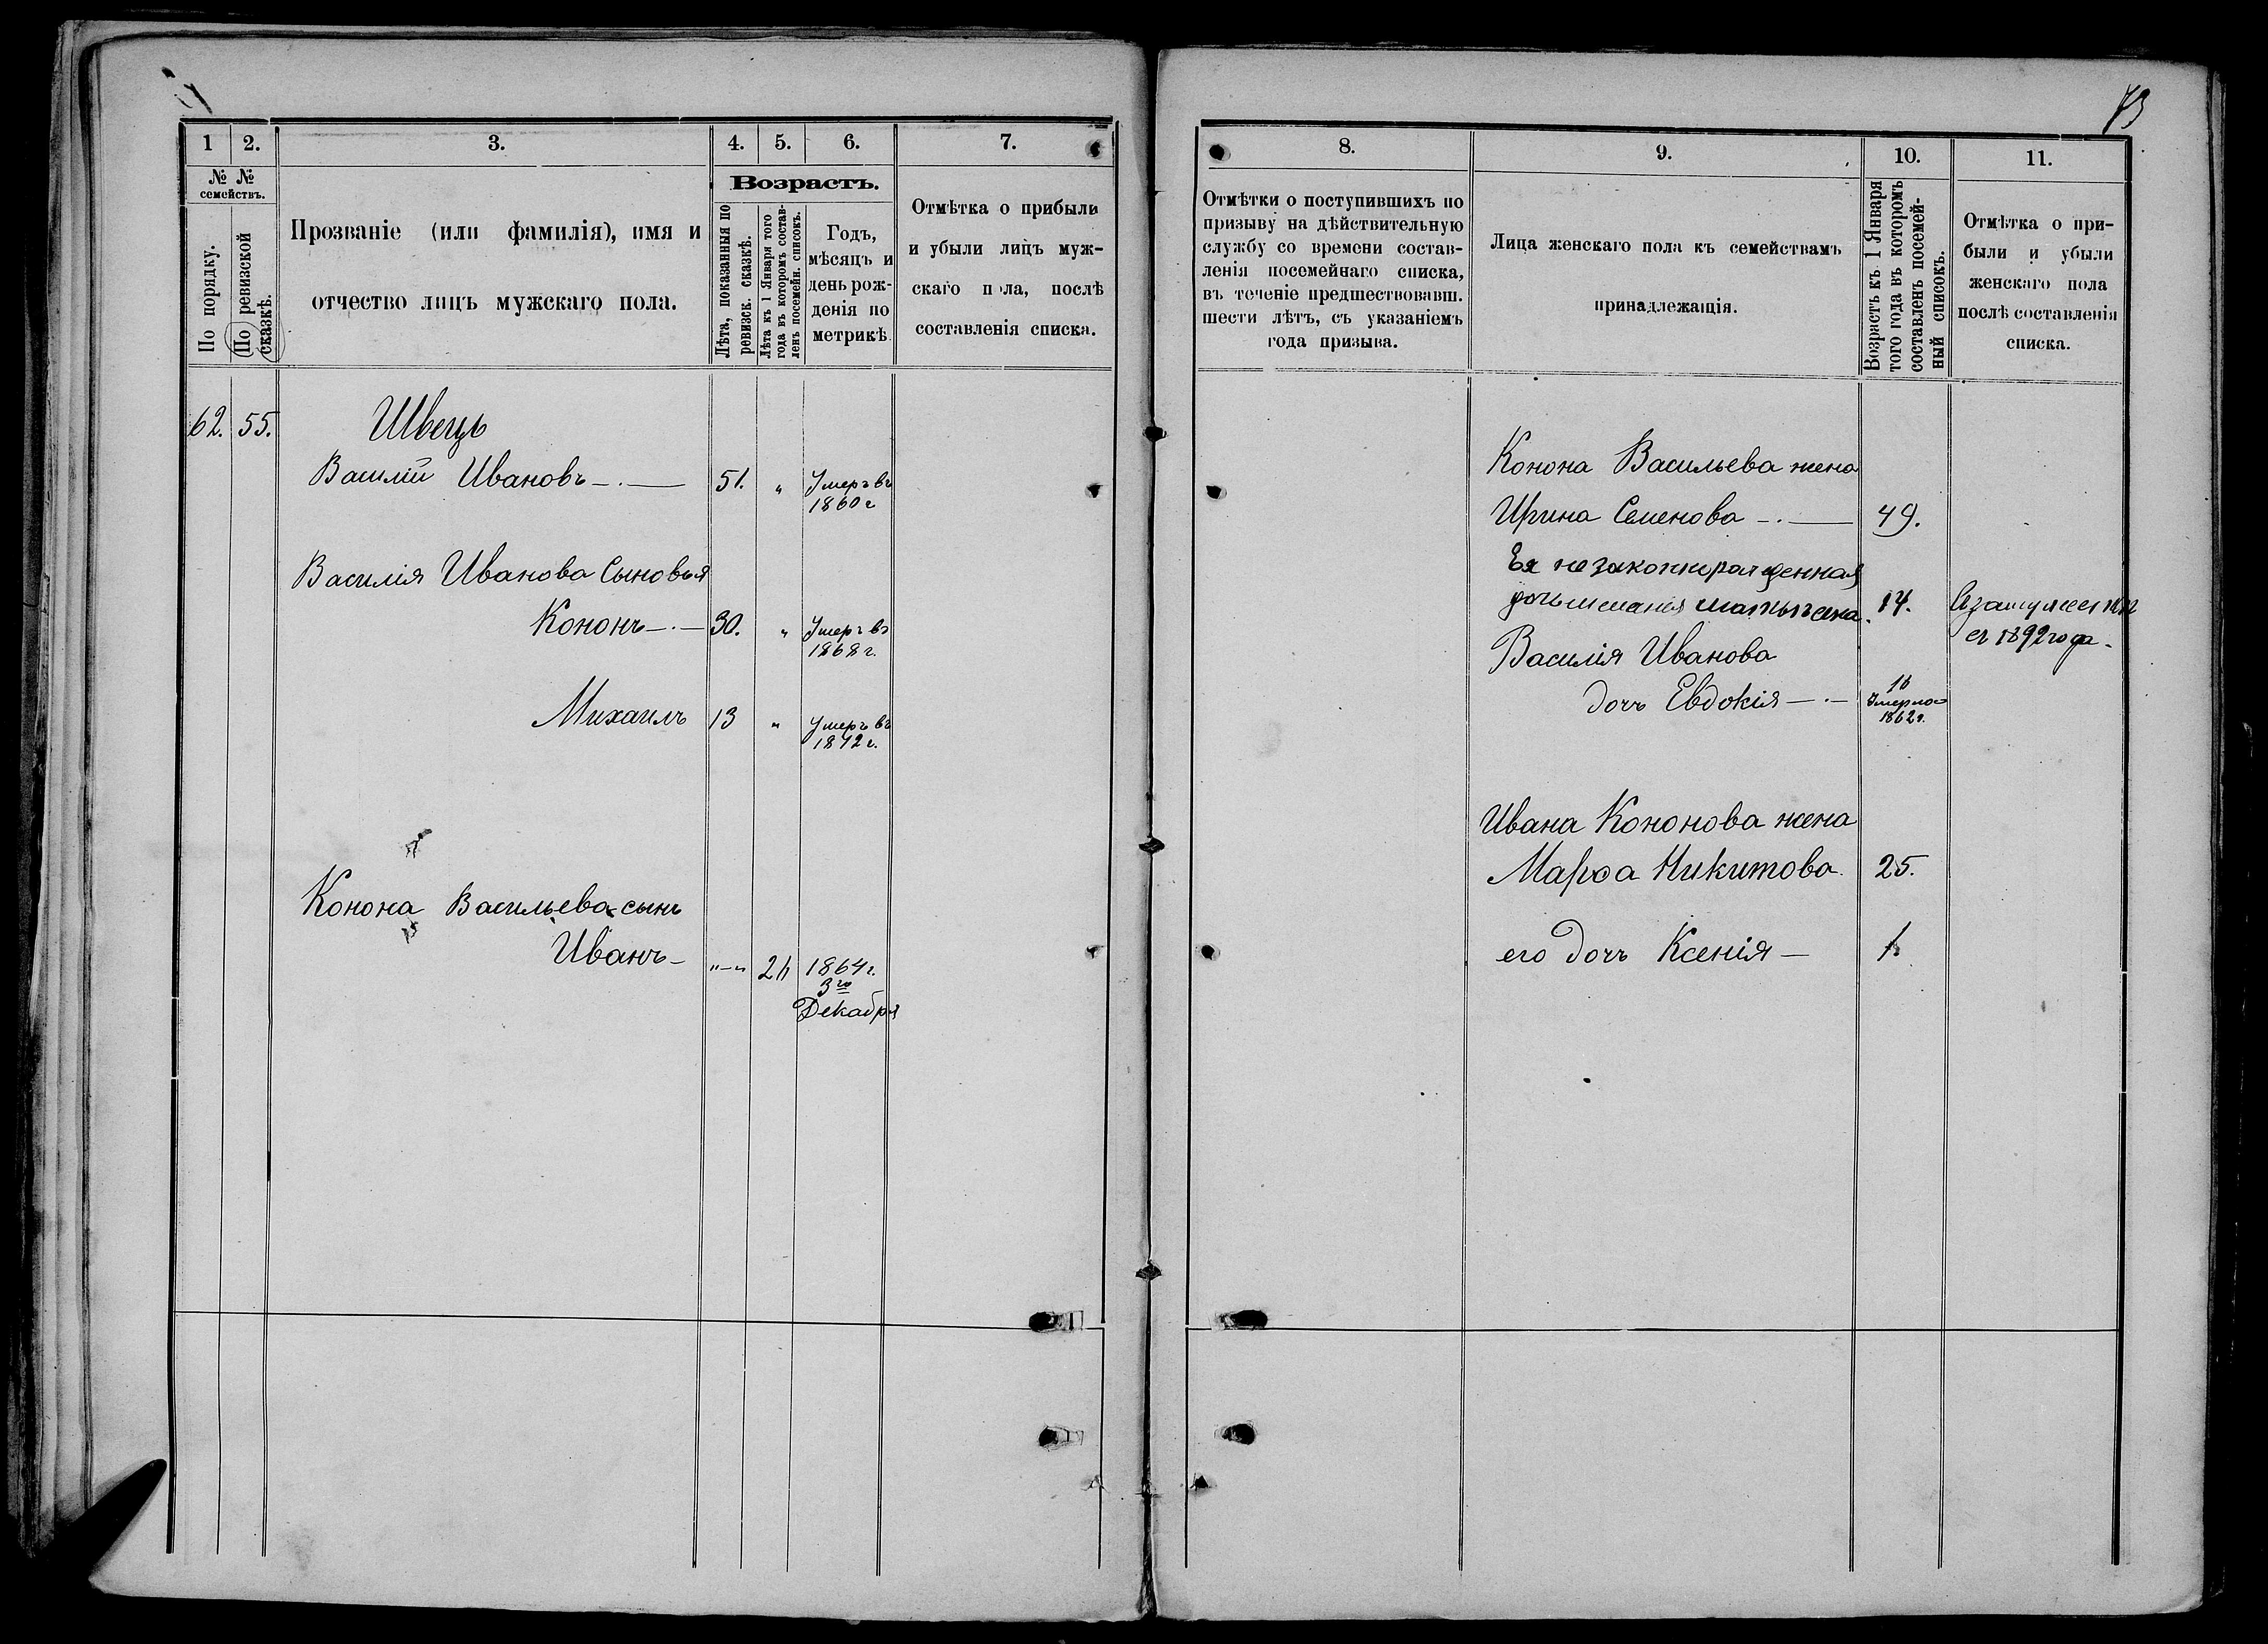 73
1 2. 3. 4. 5. 6. 7.
№ № семействъ.
По порядку.
По ревизской сказкѣ.
Прозваніе (или фамилія), имя и
отчество лицъ мужскаго пола.
Возрастъ.
Лѣта, показанныя по
ревизск. сказкѣ.
Лѣта къ 1 Января того
года въ которомъ состав-
ленъ посемейн. списокъ.
Годъ,
мѣсяцъ и
день рож-
денія по
метрикѣ
Отмѣтка о прибыли
и убыли лицъ муж-
скаго пола, послѣ
составленія списка.
62. 55. Швецъ
Василій Ивановъ 51. „ Умеръ въ
1860 г
Василія Иванова Сыновья
Кононъ 30. „ Умеръ въ
1868 г.
Михаилъ 13 „ Умеръ въ
1872 г.
Конона Васильева сынъ
Иванъ „-„ 21 1864 г.
3го
Декабря
8. 9. 10. 11.
Отмѣтки о поступившихъ по
призыву на дѣйствительную
службу со времени состав-
ленія посемейнаго списка,
въ теченіе предшествовавш.
шести лѣтъ, съ указаніемъ
года призыва.
Лица женскаго пола къ семействамъ
принадлежащія.
Возрастъ къ 1 Января
того года въ которомъ
составленъ посемей-
ный списокъ.
Отмѣтка о при-
были и убыли
женскаго пола
послѣ составленія
списка.
Конона Васильева жена
Ирина Семенова 49.
Ея незаконнорожденная
дочь 14.
съ 1892 года.
Василія Иванова
дочь Евдокія 16
Умерла
1862 г.
Ивана Кононова жена
Марѳа Никитова 25.
его дочь Ксенія 1